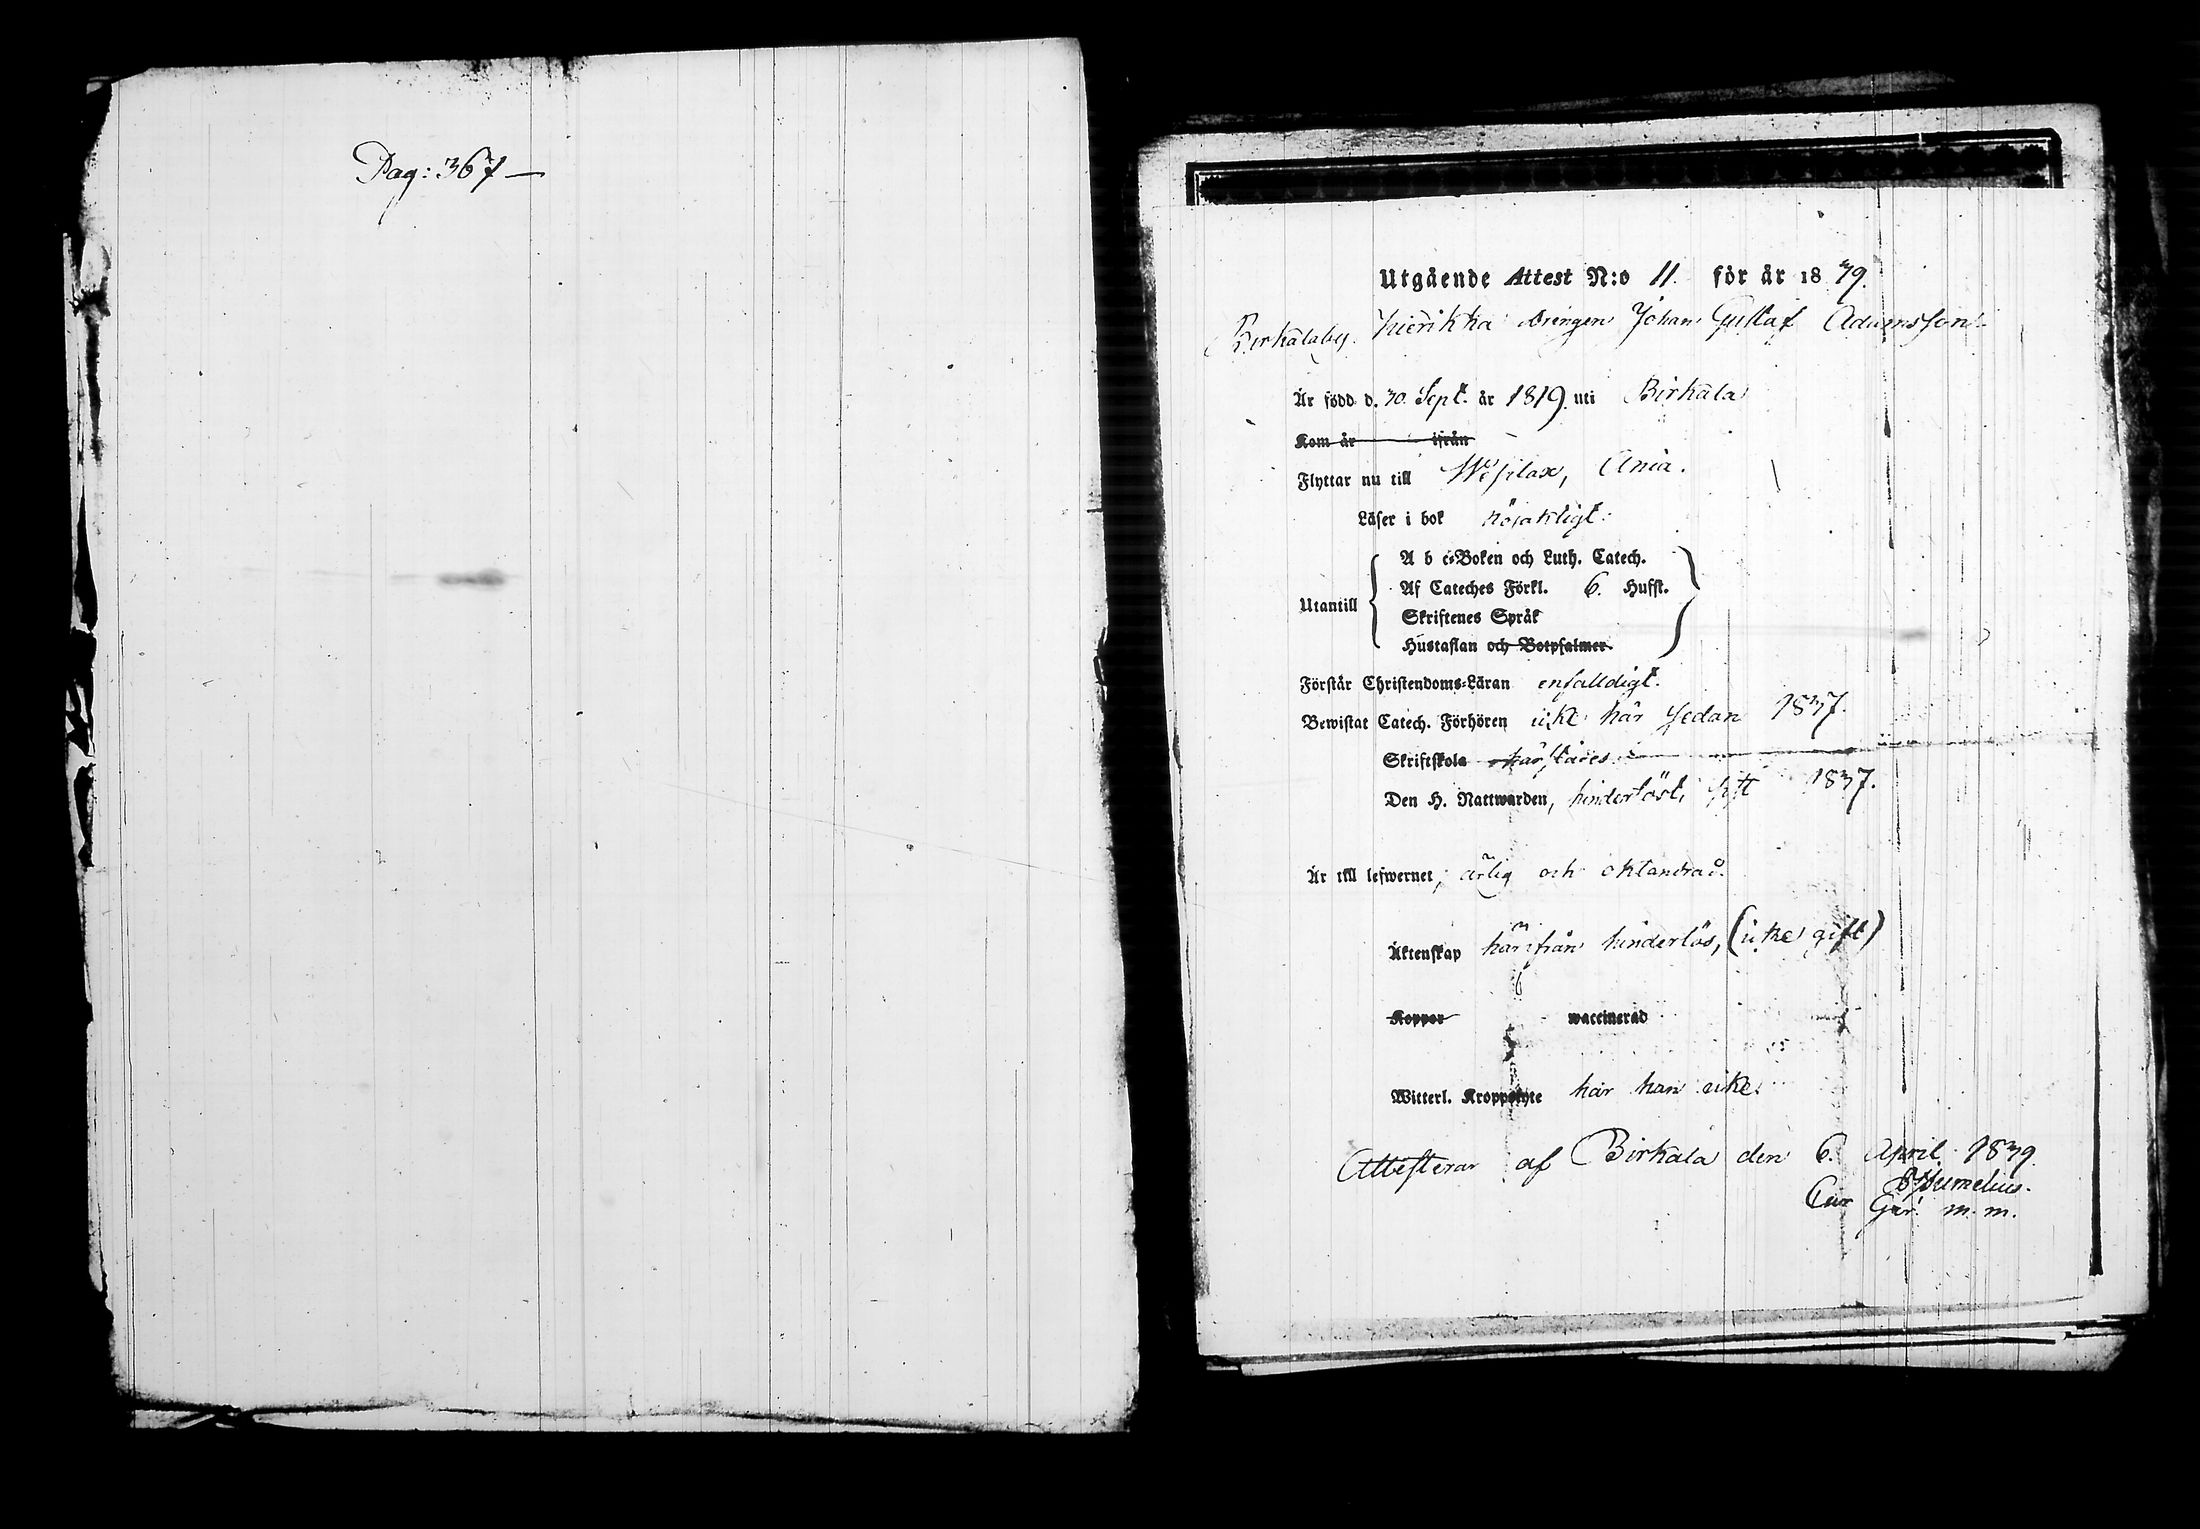 Pag: 367 —
Utgående Attest N:o 11. för år 1839.
Birkalaby Hierikka Drengen Johan Gustaf Adamsson.
Är född d. 30. Sept. år 1819. uti Birkala
Kom år ifrån
Flyttar nu till Wesilax, Ania.
Läser i bok
A b c-Boken och Luth. Catech.
Af Cateches Förkl. 6. Hufst.
Utantill
Skriftenes Språk
Hustaflan och Botpsalmer.
Förstår Christendoms-Läran enfalldigt.
Bewistat Catech. Förhören icke här sedan 1837.
Skriftskola
Den H. Nattwarden, hinderlöst, sist 1837.
Är till lefwernet, ärlig och oklandrad.
Äktenskap härifrån hinderlös, (icke gift)
Koppor waccinerad
Witterl. Kroppslyte har han icke.
Attesterar af Birkala den 6. April 1839.
Cur Gär. m. m.